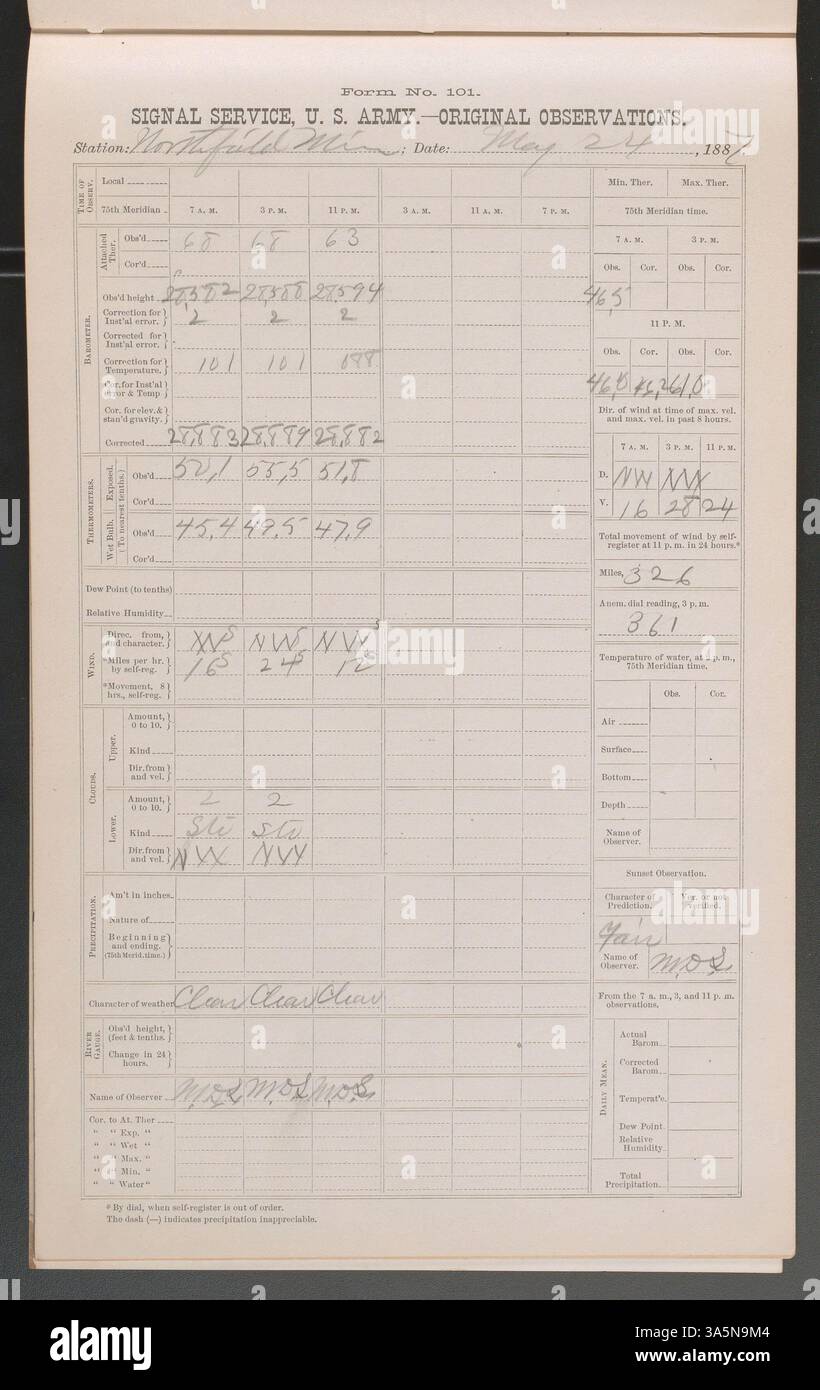 Form No. 101.
SIGNAL SERVICE, U. S. ARMY.—ORIGINAL OBSERVATIONS.
Station: Northfield Minn ; Date: May 24, 1887
TIME OF OBSERV.
Local
75th Meridian 7 A. M. 3 P. M. 11 P. M. 3 A. M. 11 A. M. 7 P. M.
BAROMETER.
Attached Ther.
Obs'd 68 68 63
Cor'd
Obs'd height 28,588 28594
Correction for Inst'al error. 2 2 2
Corrected for Inst'al error.
Correction for Temperature. 101 101 088
Cor. for Inst'al error & Temp
Cor. for elev. & stan'd gravity.
Corrected 28,883 28,889 28,882
THERMOMETERS.
(To nearest tenths.)
Exposed.
Obs'd 50,1 55,5 51,8
Cor'd
Wet Bulb.
Obs'd 45,4 49,5 47,9
Cor'd
Dew Point (to tenths)
Relative Humidity
WIND.
Direc. from, and character. NW S NW S
*Miles per hr. by self-reg. 16 S 24 S 12 S
*Movement, 8 hrs., self-reg.
CLOUDS.
Upper.
Amount, 0 to 10.
Kind
Dir. from and vel.
Lower.
Amount, 0 to 10. 2 2
Kind
Dir. from and vel. NW NW
PRECIPITATION.
Am't in inches.
Nature of
Beginning and ending. (75th Merid. time.)
Character of weather Clear Clear Clear
RIVER GAUGE.
Obs'd height, (feet & tenths.
Change in 24 hours.
Name of Observer M.D.S. M.D.S. M.D.S.
Cor. to At. Ther
" " Exp. "
" " Wet "
" " Max. "
" " Min. "
" " Water"
* By dial, when self-register is out of order.
The dash (—) indicates precipitation inappreciable.
Min. Ther. Max. Ther.
75th Meridian time.
7 A. M. 3 P. M.
Obs. Cor. Obs. Cor.
46,5
11 P. M.
Obs. Cor. Obs. Cor.
Dir. of wind at time of max. vel. and max. vel. in past 8 hours.
7 A. M. 3 P. M. 11 P. M.
D. NW
V. 16 28 24
Total movement of wind by self-register at 11 p. m. in 24 hours.*
Miles, 326
Anem. dial reading, 3 p. m.
361
Temperature of water, at 2 p. m., 75th Meridian time.
Obs. Cor.
Air
Surface
Bottom
Depth
Name of Observer.
Sunset Observation.
Character of Prediction. Ver. or not verified.
Fair
Name of Observer. M.D.S.
From the 7 a. m., 3, and 11 p. m. observations.
DAILY MEAN.
Actual Barom
Corrected Barom.
Temperat'e.
Dew Point.
Relative Humidity.
Total Precipitation.
alamy
alamy
alamy
alamy
Image ID: 3A5N9M4
www.alamy.com